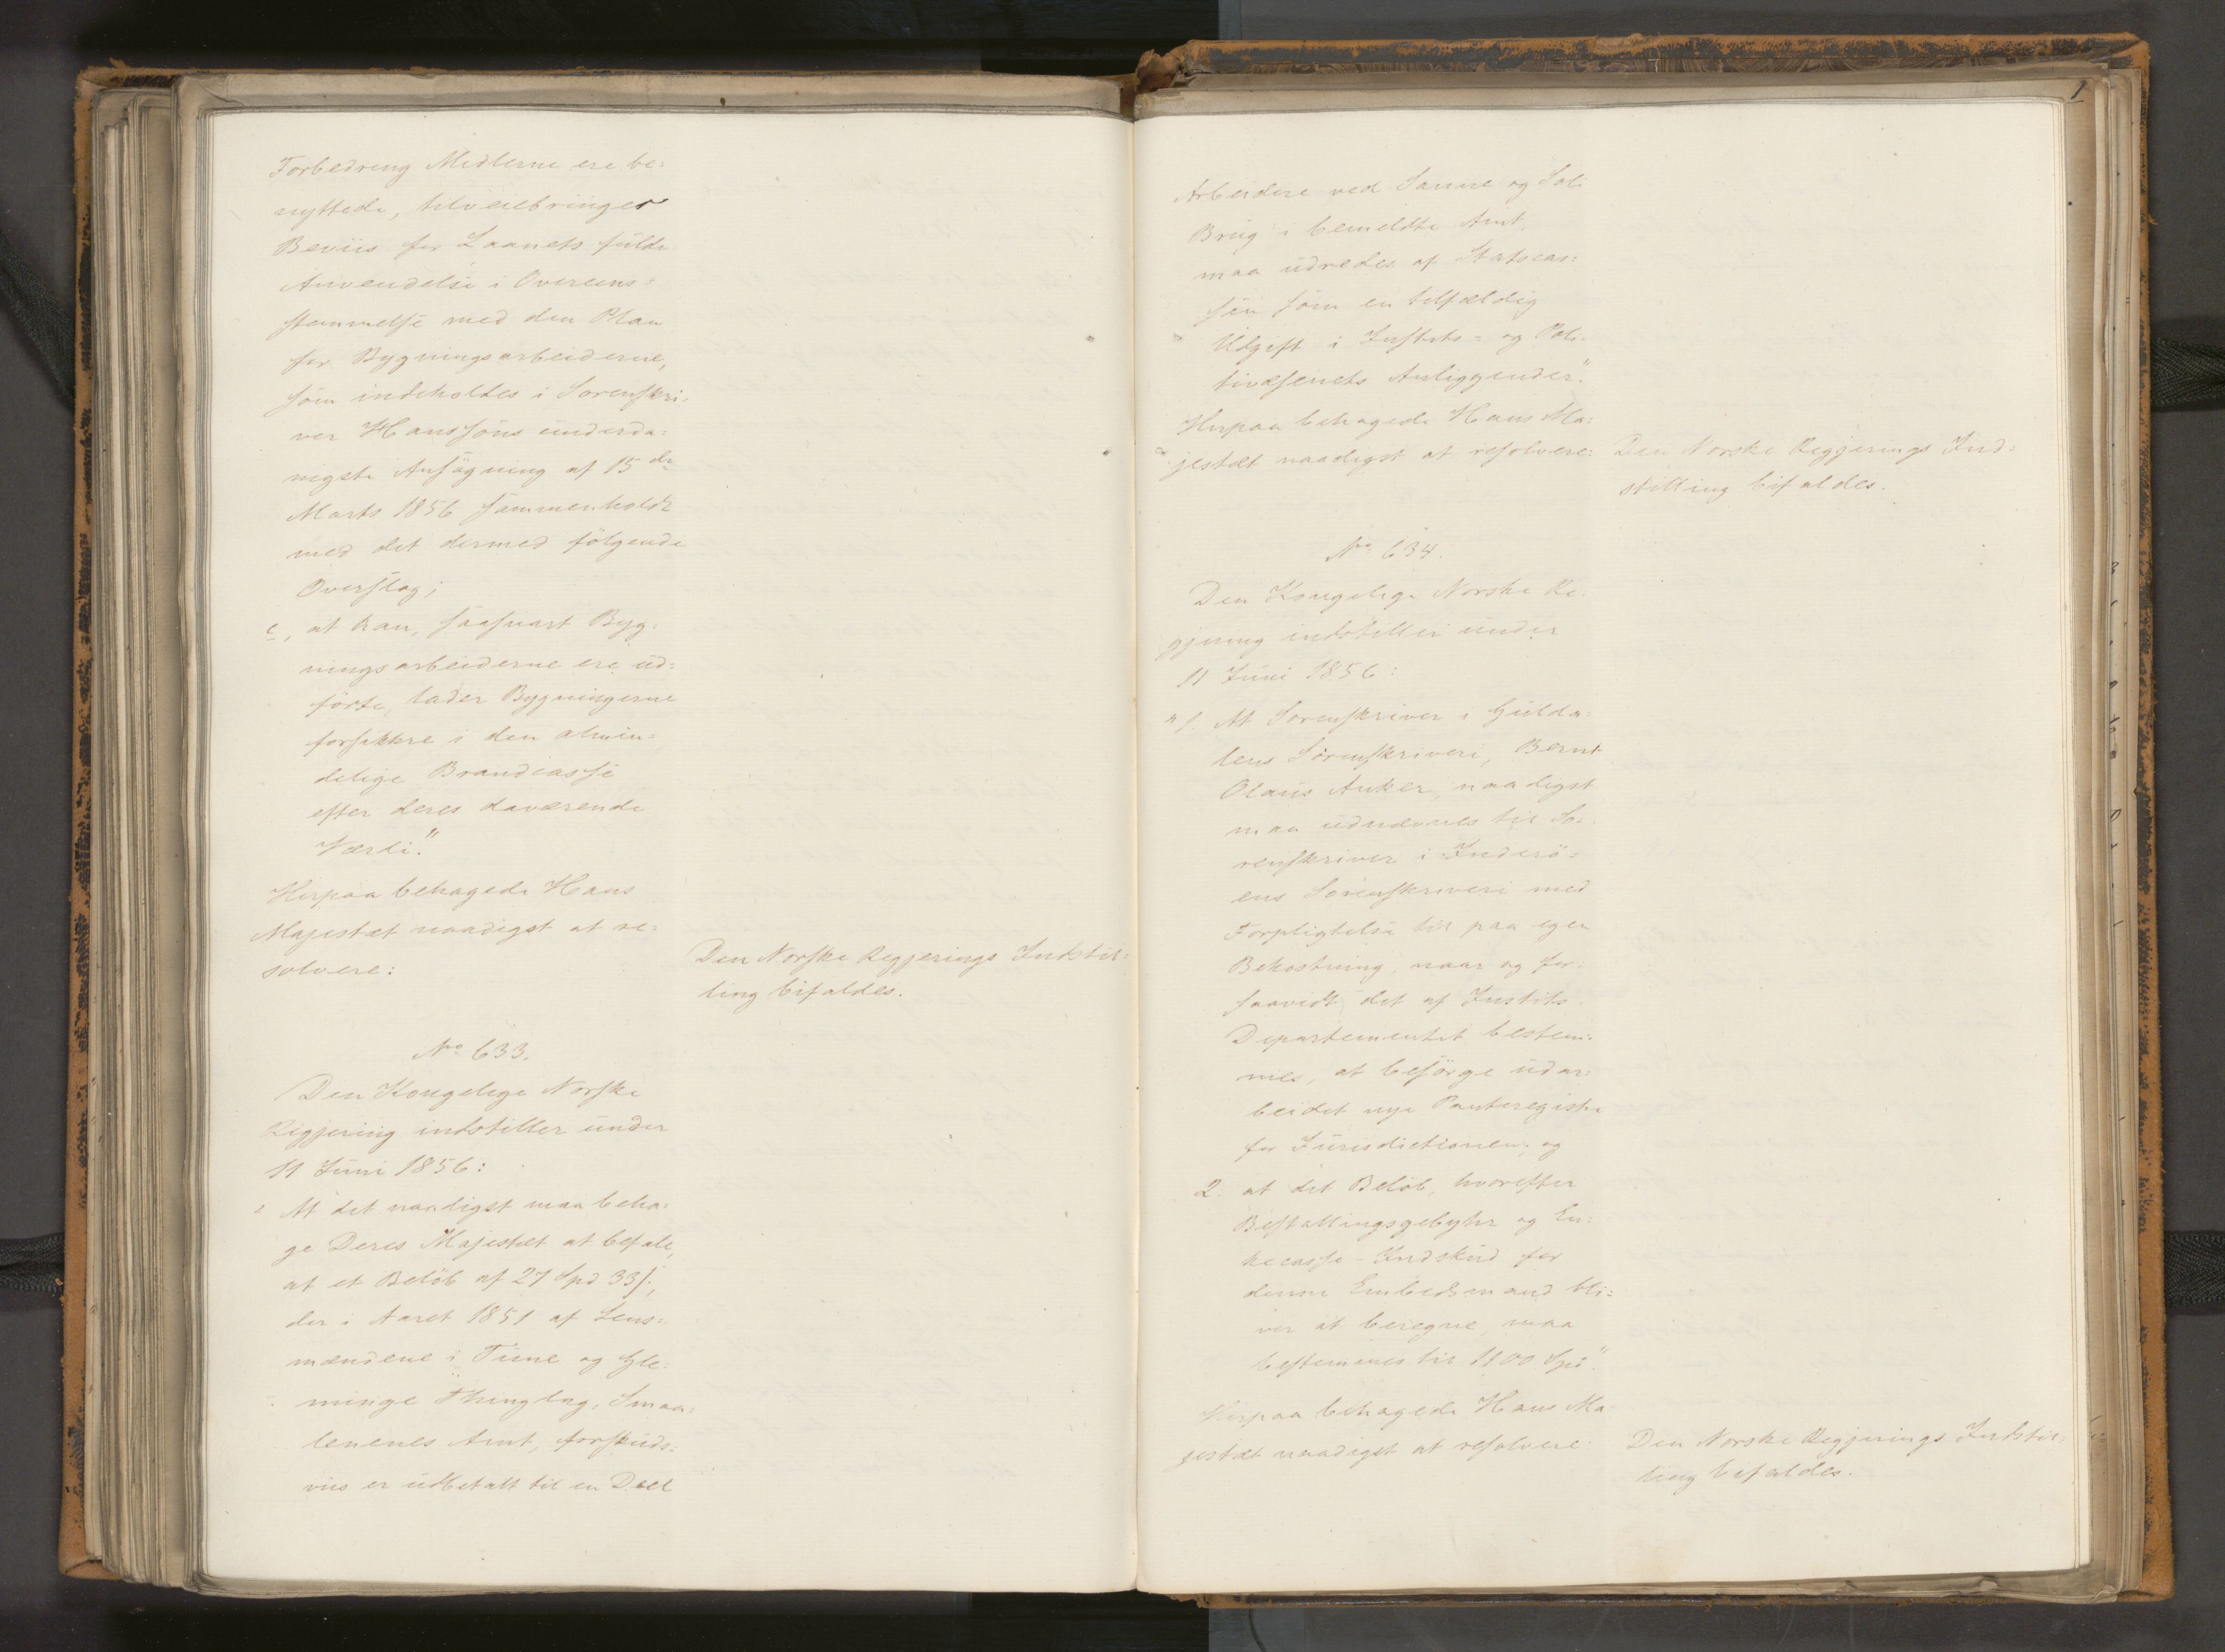 Forbedring Midlerne ere be-
nyttede, tilveiebringer
Beviis for Laanets fulde
Anvendelse i Overeens-
stemmelse med den Plan
for Bygningsarbeiderne,
som indeholdes i Sorenskri-
ver Hanssöns underda-
nigste Ansögning af 15de
Marts 1856 sammenholdt
med det dermed fölgende
Overslag;
c, at han, saasnart Byg-
ningsarbeiderne ere ud-
förte, lader Bygningerne
forsikkre i den almin-
delige Brandcasse
efter deres daværende
Værdi."
Herpaa behagede Hans
Majestæt naadigst at re-
solvere:
Den Norske Regjerings Indstil-
ling bifaldes.
No 633.
Den Kongelige Norske
Regjering indstiller under
11 Juni 1856:
" At det naadigst maa beha-
ge Deres Majestæt at befale,
at et Belöb af 27 Spd 33 s.,
der i Aaret 1851 af Lens-
mændene i Tune og Gle-
minge Thinglag, Smaa-
lenenes Amt, forskuds-
viis er udbetalt til en Deel
1
Arbeidere ved Sanne og Soli
Brug i bemeldte Amt,
maa udredes af Statscas-
sen som en tilfældig
Udgift i Justits- og Poli-
tivæsenets Anliggender."
Herpaa behagede Hans Ma-
jestæt naadigst at resolvere:
Den Norske Regjerings Ind-
stilling bifaldes.
No 634.
Den Kongelige Norske Re-
gjering indstiller under
11 Juni 1856:
" 1. At Sorenskriver i Gulda-
lens Sorenskriveri, Bernt
Olaus Anker, naadigst
maa udnævnes til So-
renskriver i Inderö-
ens Sorenskriveri med
Forpligtelse til paa egen
Bekostning, naar og for-
saavidt det af Justits
Departementet bestem-
mes, at besörge udar-
beidet nye Panteregistre
for Jurisdictionen; og
2. at det Belöb, hvorefter
Bestallingsgebyhr og En-
kecasse-Indskud for
denne Embedsmand bli-
ver at beregne, maa
bestemmes til 1100 Spd."
Herpaa behagede Hans Ma-
jestæt naadigst at resolvere:
Den Norske Regjerings Indstil-
ling bifaldes.